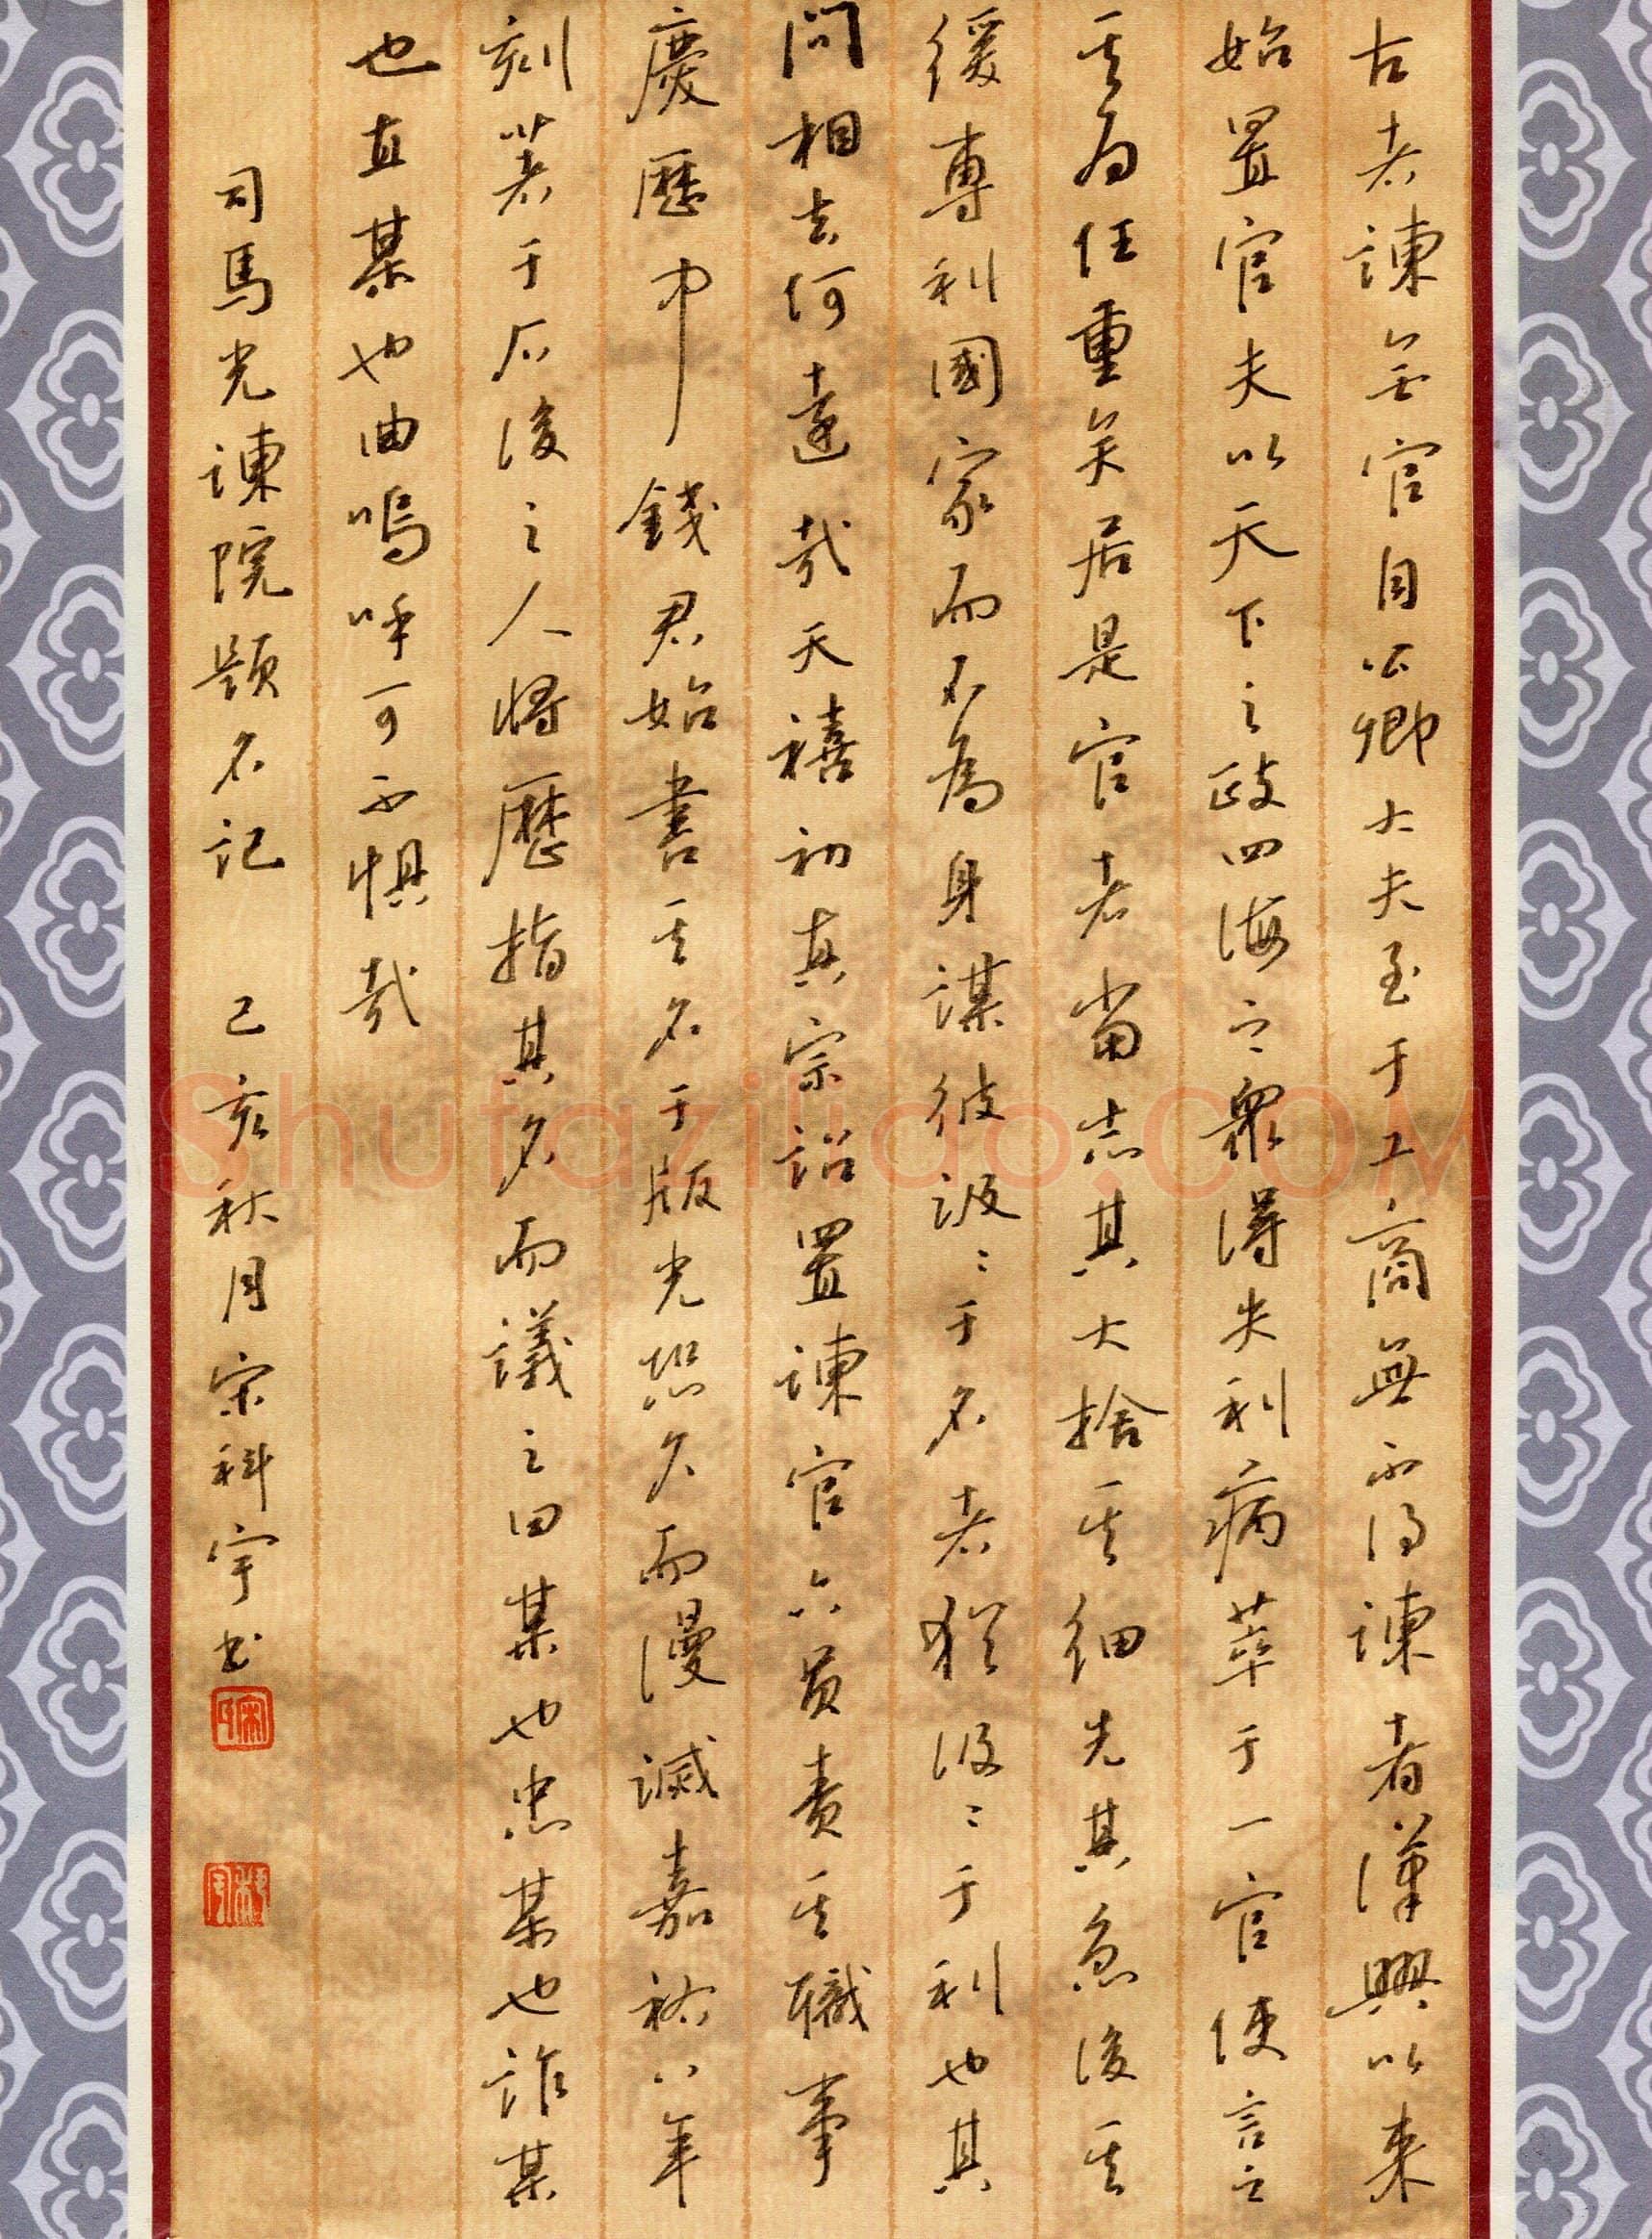 古者諫無官自公卿大夫至于工商無不得諫者漢興以来
始置官夫以天下之政四海之眾得失利病萃于一官使言之
其為任重矣居是官者當志其大捨其細先其急後其
緩專利國家而不為身謀彼汲〻于名者猶汲〻于利也其
問相去何遠哉天禧初真宗詔置諫官六員責其職事
慶歷中錢君始書其名于版光恐久而漫滅嘉祐八年
刻著于石後之人將歷指其名而議之曰某也忠某也詐某
也直某也曲嗚呼可不懼哉
司馬光諫院題名記 己亥秋月宋科宇书
Shufaziliao.COM